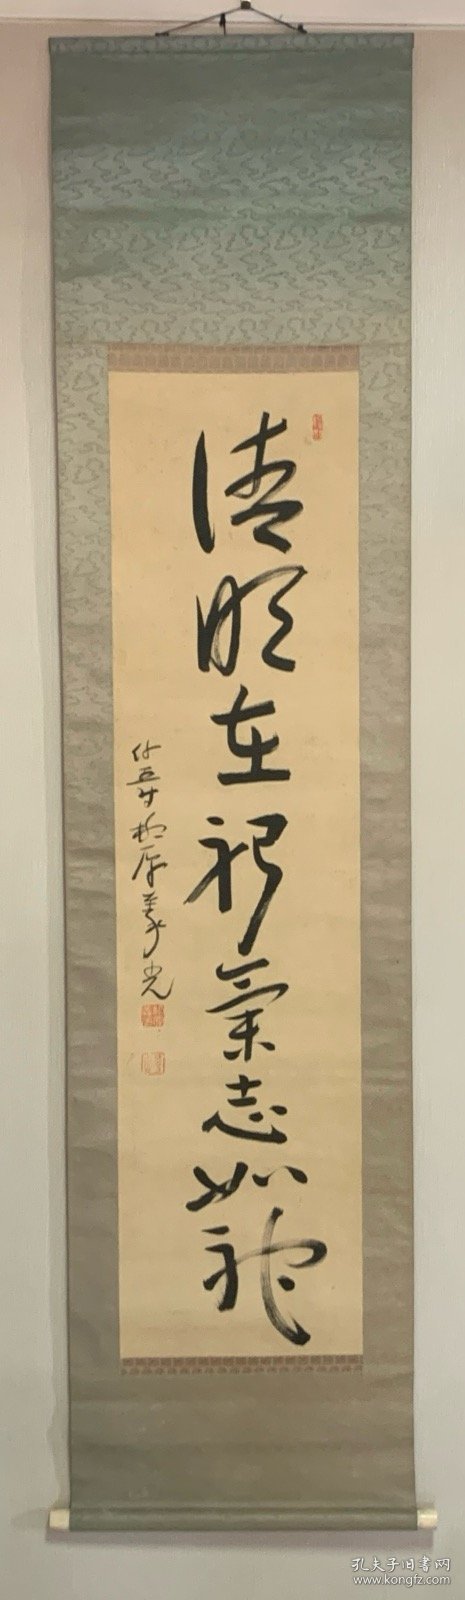 清明在躬氣志如神
柳原義光
孔夫子旧书网
www.kongfz.com